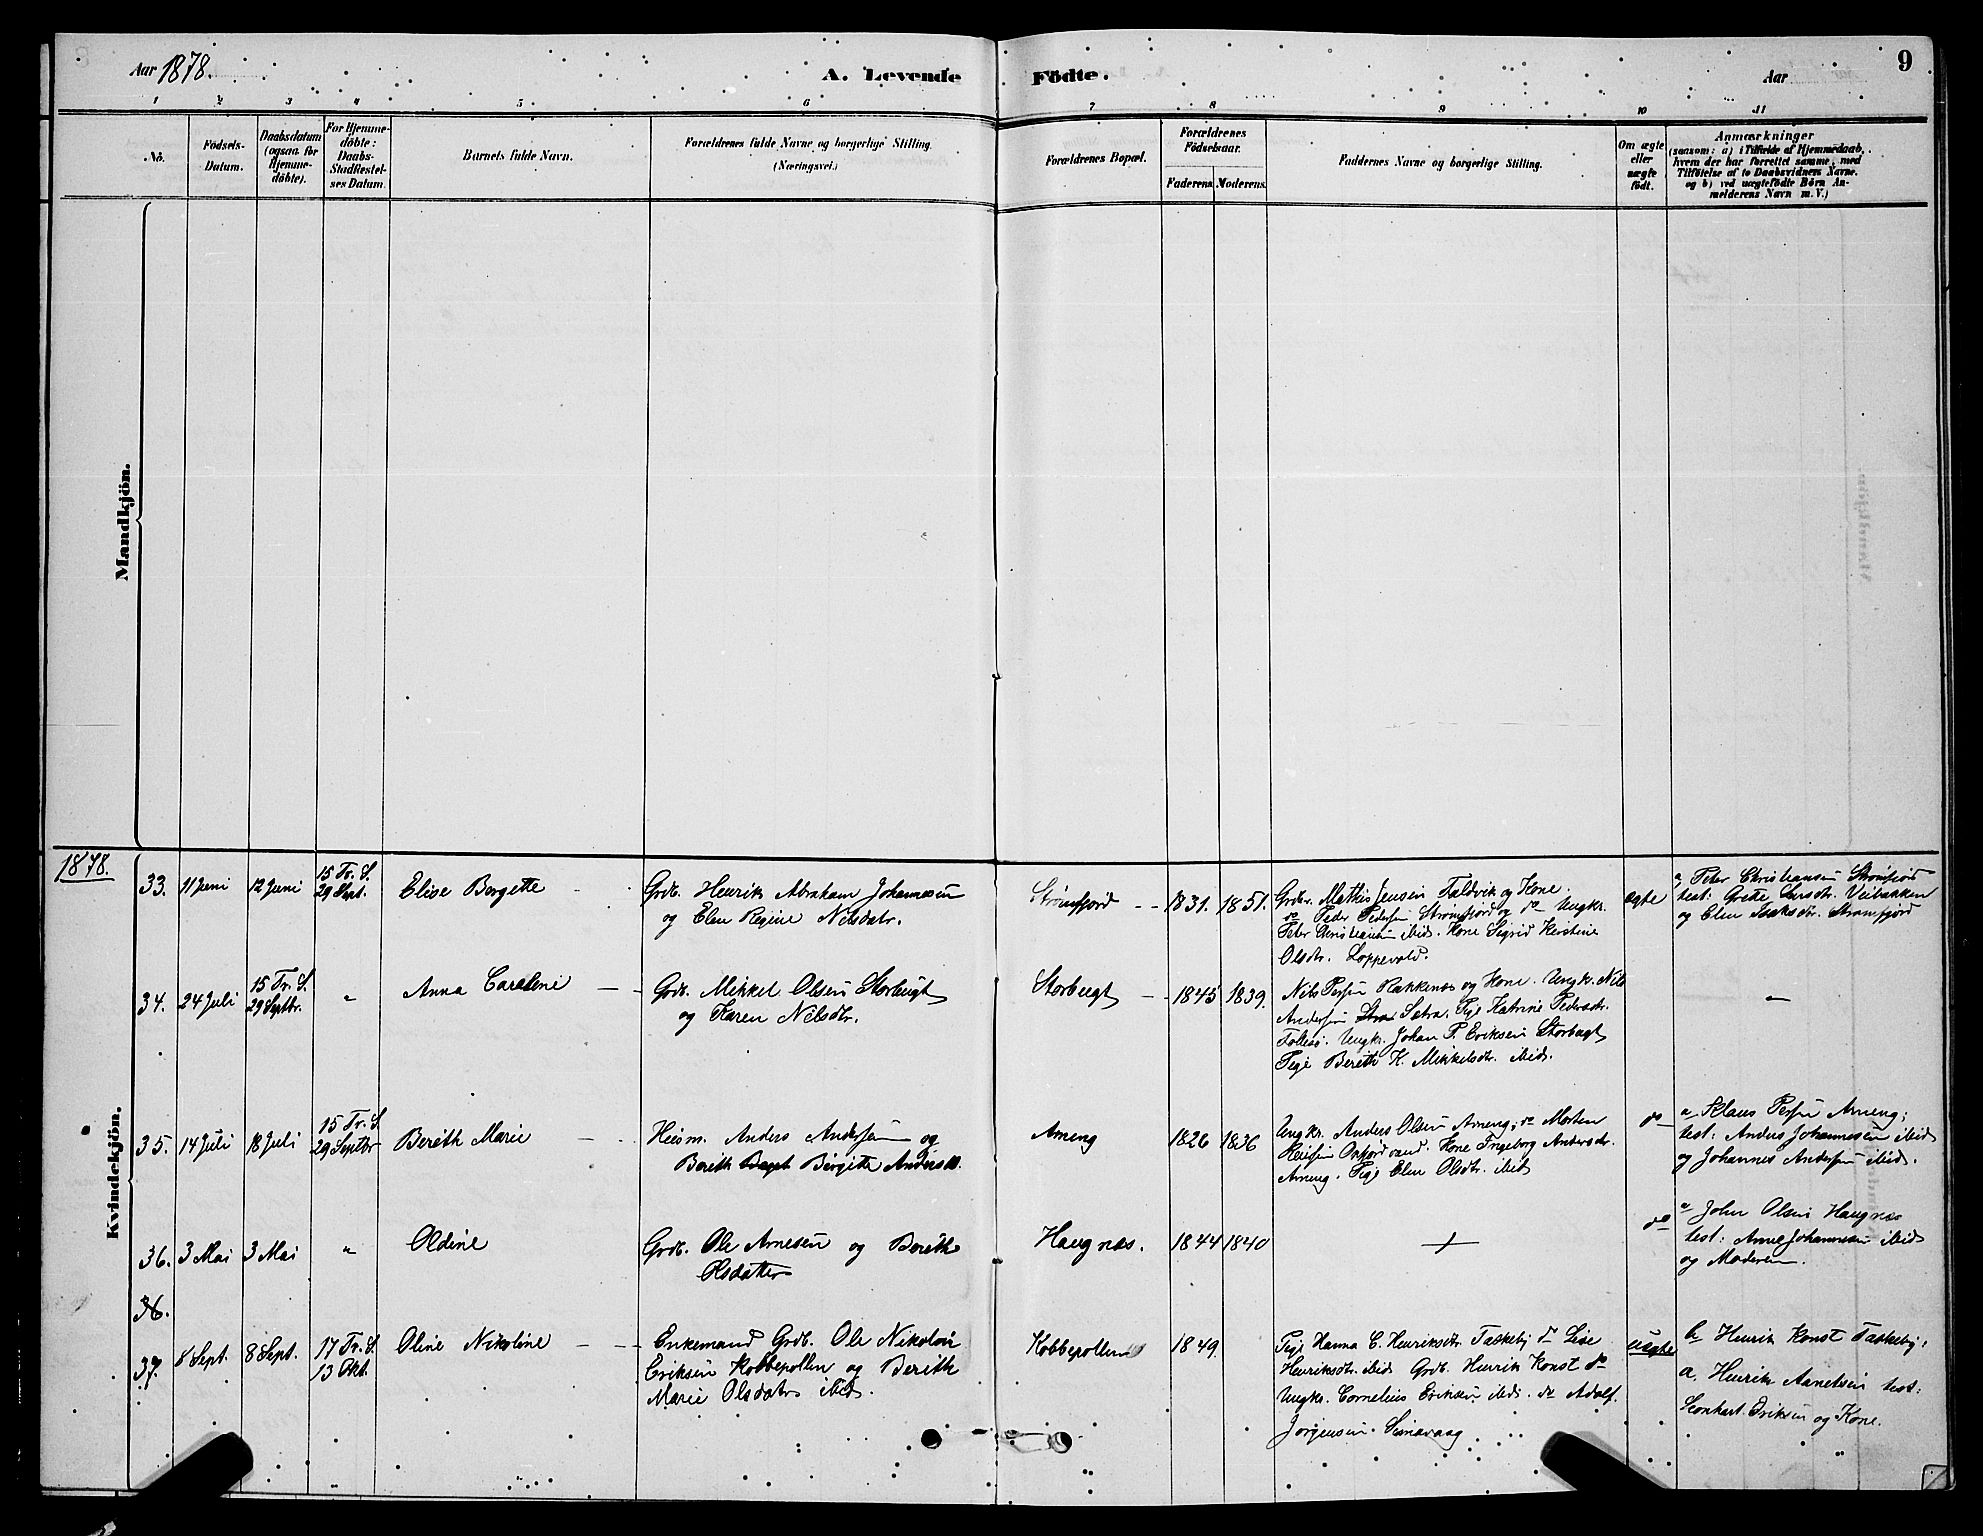 Aar 1878. A. Levende Födte. Aar 9
1 2 3 4 5 6 7 8 9 10 11
No.
Födsels-
Datum.
Daabsdatum
(ogsaa for
Hjemme-
döbte).
For Hjemme-
döbte:
Daabs-
Stadfæstel-
ses Datum.
Barnets fulde Navn.
Forældrenes fulde Navne og borgerlige Stilling.
(Næringsvei.)
Forældrenes Bopæl.
Forældrenes
Födselsaar.
Faderens. Moderens.
Faddernes Navne og borgerlige Stilling.
Om ægte
eller
uægte
födt.
Anmærkninger
(saasom: a) i Tilfælde af Hjemmedaab,
hvem der har forrettet samme, med
Tilföielse af to Daabsvidners Navne.
og b) ved uægtefödte Börn An-
melderens Navn m. V.)
Mandkjön.
1878.
Kvindekjön.
33. 11 Juni 12 Juni
15 Tr. S.
29 Sept.
Elise Borgette
Grdb. Henrik Abraham Johannesen
og Elen Regine Nilsdatr.
Strømfjord 1831. 1851.
Grdbr. Mathis Jensen Faldvik og Kone.
do Peder Pedersen Strømfjord og do Ungkr.
Peter Christiansen ibid. Kone Sigrid Kirstine
Olsdtr. Loppevold.
ægte
a, Peter Christiansen Strømfjord
test: Grete Larsdtr. Veibakken
og Elen Isaksdtr. Strømfjord
34. 24 Juli
15 Tr. S.
29 Septbr.
"
Anna Caroline
Grdb. Mikkel Olsen Storbugt
og Karen Nilsdtr.
Storbugt 1845 1839.
Nils Persen Rakkenes og Kone. Ungkr. Nils
Andersen Sætra. Pige Katrine Pedersdtr.
Follesø. Ungkr. Johan P. Eriksen Storbugt
Pige Berith K. Mikkelsdtr. ibid.
"
35. 14 Juli 18 Juli
15 Tr. S
29 Septbr
Berith Marie
Huusm. Anders Andersen og
Berith Birgitte Andersd.
Arneng 1826 1836
Ungkr. Anders Olsen Arneng; do Morten
Oxfjordvand. Kone Ingeborg Andersdr.
Arneng. Pige Elen Olsdtr. ibid
do
a Klaus Persen Arneng;
test: Anders Johannesen ibid
og Johannes Andersen ibid.
36. 3 Mai 3 Mai " Oldine
Grdb. Ole Arnesen og Berith
Olsdatter
Haugnæs. 1844 1840
+
do
a John Olsen Haugnæs
test: Arne Johannesen ibid
og Moderen.
36.
37. 8 Sept. 8 Sept.
17 Tr. S.
13 Okt.
Oline Nikoline
Enkemand Grdb. Ole Nikolai
Eriksen Kobbepollen og Berith
Marie Olsdatr ibid.
Kobbepollen 1849
Pige Hanna C. Henriksdtr. Taskeby do Lise
Henriksdtr. ibid Grdb. Henrik Konst do
Ungkr. Cornelius Eriksen ibid. do Adolf
Jørgensen Simavaag
uægte
b Henrik Konst Taskeby;
a, Henrik Anetsen test:
Leonhart Eriksen og Kone.